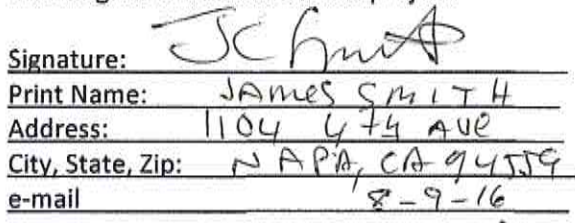 Signature: JC Smith
Print Name: JAMES SMITH
Address: 1104 4TH AVE
City, State, Zip: NAPA, CA 94559
e-mail 8-9-16